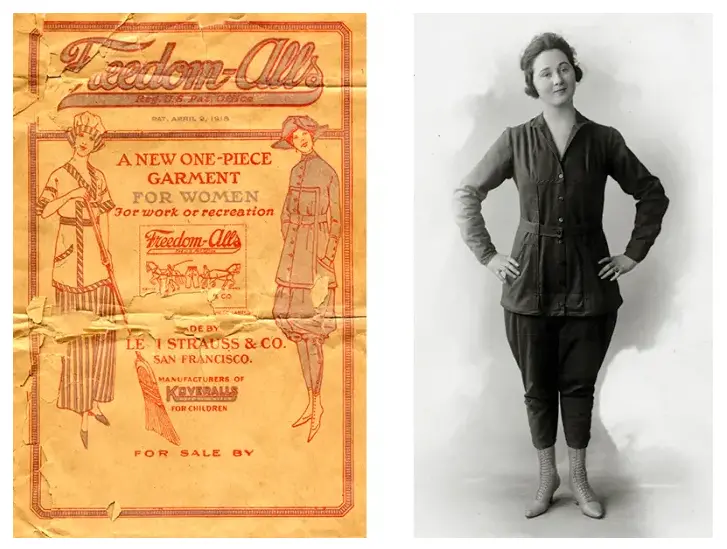 Freedom-Alls
Reg. U.S. Pat. Office
PAT. APRIL 2, 1918
A NEW ONE-PIECE
GARMENT
FOR WOMEN
For work or recreation
Freedom-Alls
& CO
MADE BY
LEVI STRAUSS & CO.
SAN FRANCISCO.
MANUFACTURERS OF
KOVERALLS
FOR CHILDREN
FOR SALE BY